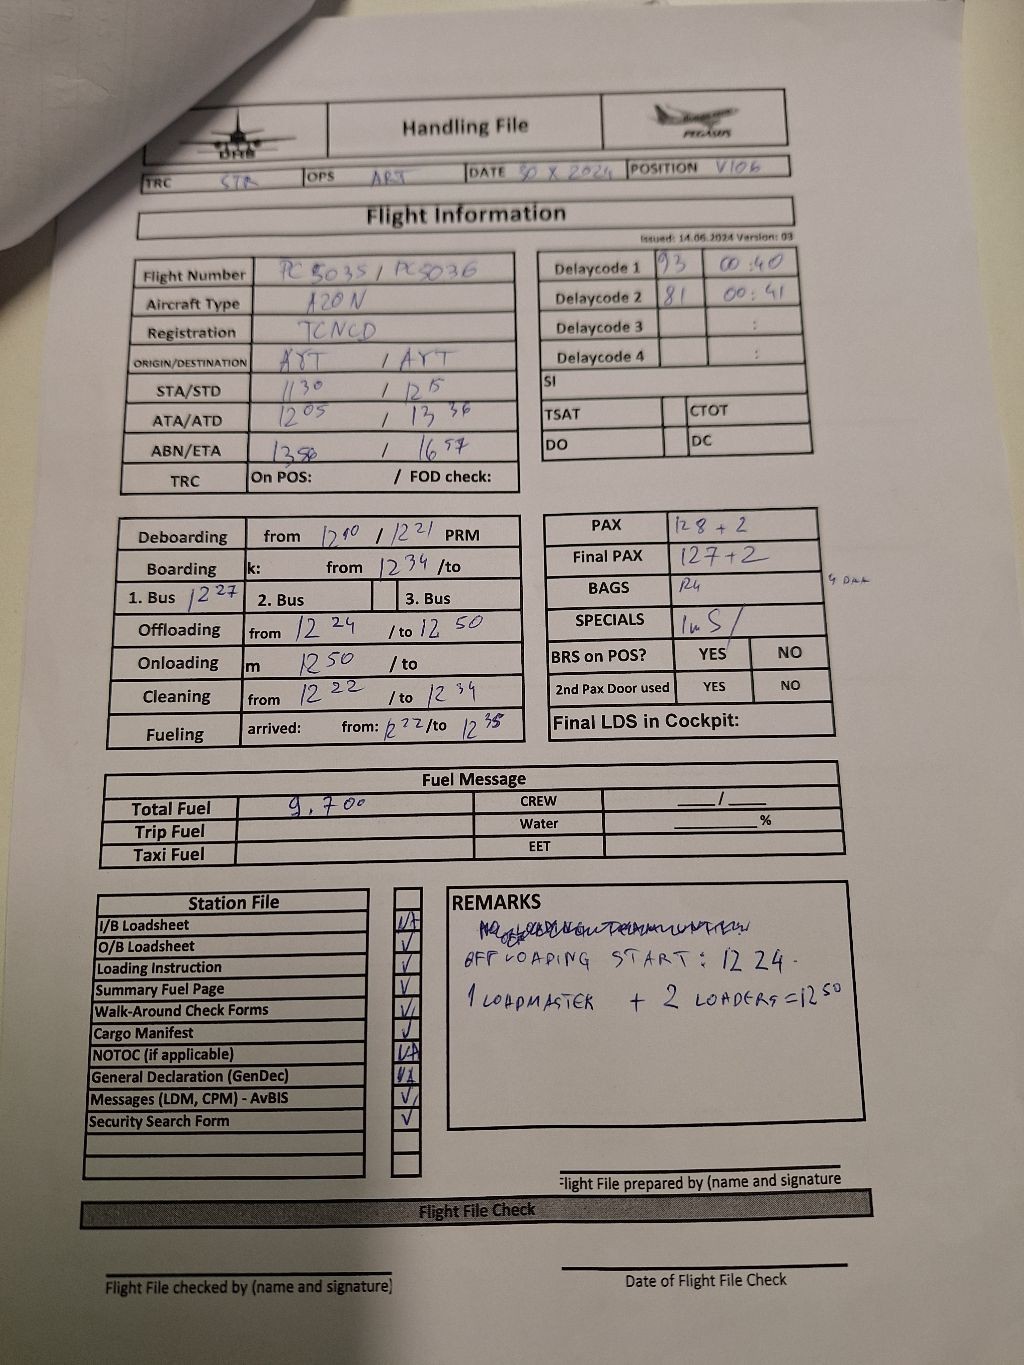 DHS
Handling File
PEGASUS
TRC STR OPS ART DATE 30 X 2024 POSITION V106
Flight Information
Issued: 14.06.2024 Version: 03
Flight Number PC 5035 / PC5036
Aircraft Type A20N
Registration TCNCD
ORIGIN/DESTINATION AYT / AYT
STA/STD 1130 / 1215
ATA/ATD 1205 / 1336
ABN/ETA / 1657
TRC On POS: / FOD check:
Delaycode 1 93 00:40
Delaycode 2 81 00:41
Delaycode 3 :
Delaycode 4 :
SI
TSAT CTOT
DO DC
Deboarding from 1210 / 1221 PRM
Boarding k: from 1234 /to
1. Bus 1227 2. Bus 3. Bus
Offloading from 1224 / to 1250
Onloading m 1250 / to
Cleaning from 1222 / to 1234
Fueling arrived: from: 1222 /to 1235
PAX 128 + 2
Final PAX 127+2
BAGS
SPECIALS
BRS on POS? YES NO
2nd Pax Door used YES NO
Final LDS in Cockpit:
Fuel Message
Total Fuel 9.700 CREW ___/___
Trip Fuel Water ______%
Taxi Fuel EET
Station File
I/B Loadsheet
O/B Loadsheet ✓
Loading Instruction ✓
Summary Fuel Page ✓
Walk-Around Check Forms ✓
Cargo Manifest ✓
NOTOC (if applicable)
General Declaration (GenDec)
Messages (LDM, CPM) - AvBIS ✓
Security Search Form ✓
REMARKS
OFFLOADING START: 1224.
1 LOADMASTER + 2 LOADERS =1250
Flight File prepared by (name and signature
Flight File Check
Flight File checked by (name and signature)
Date of Flight File Check